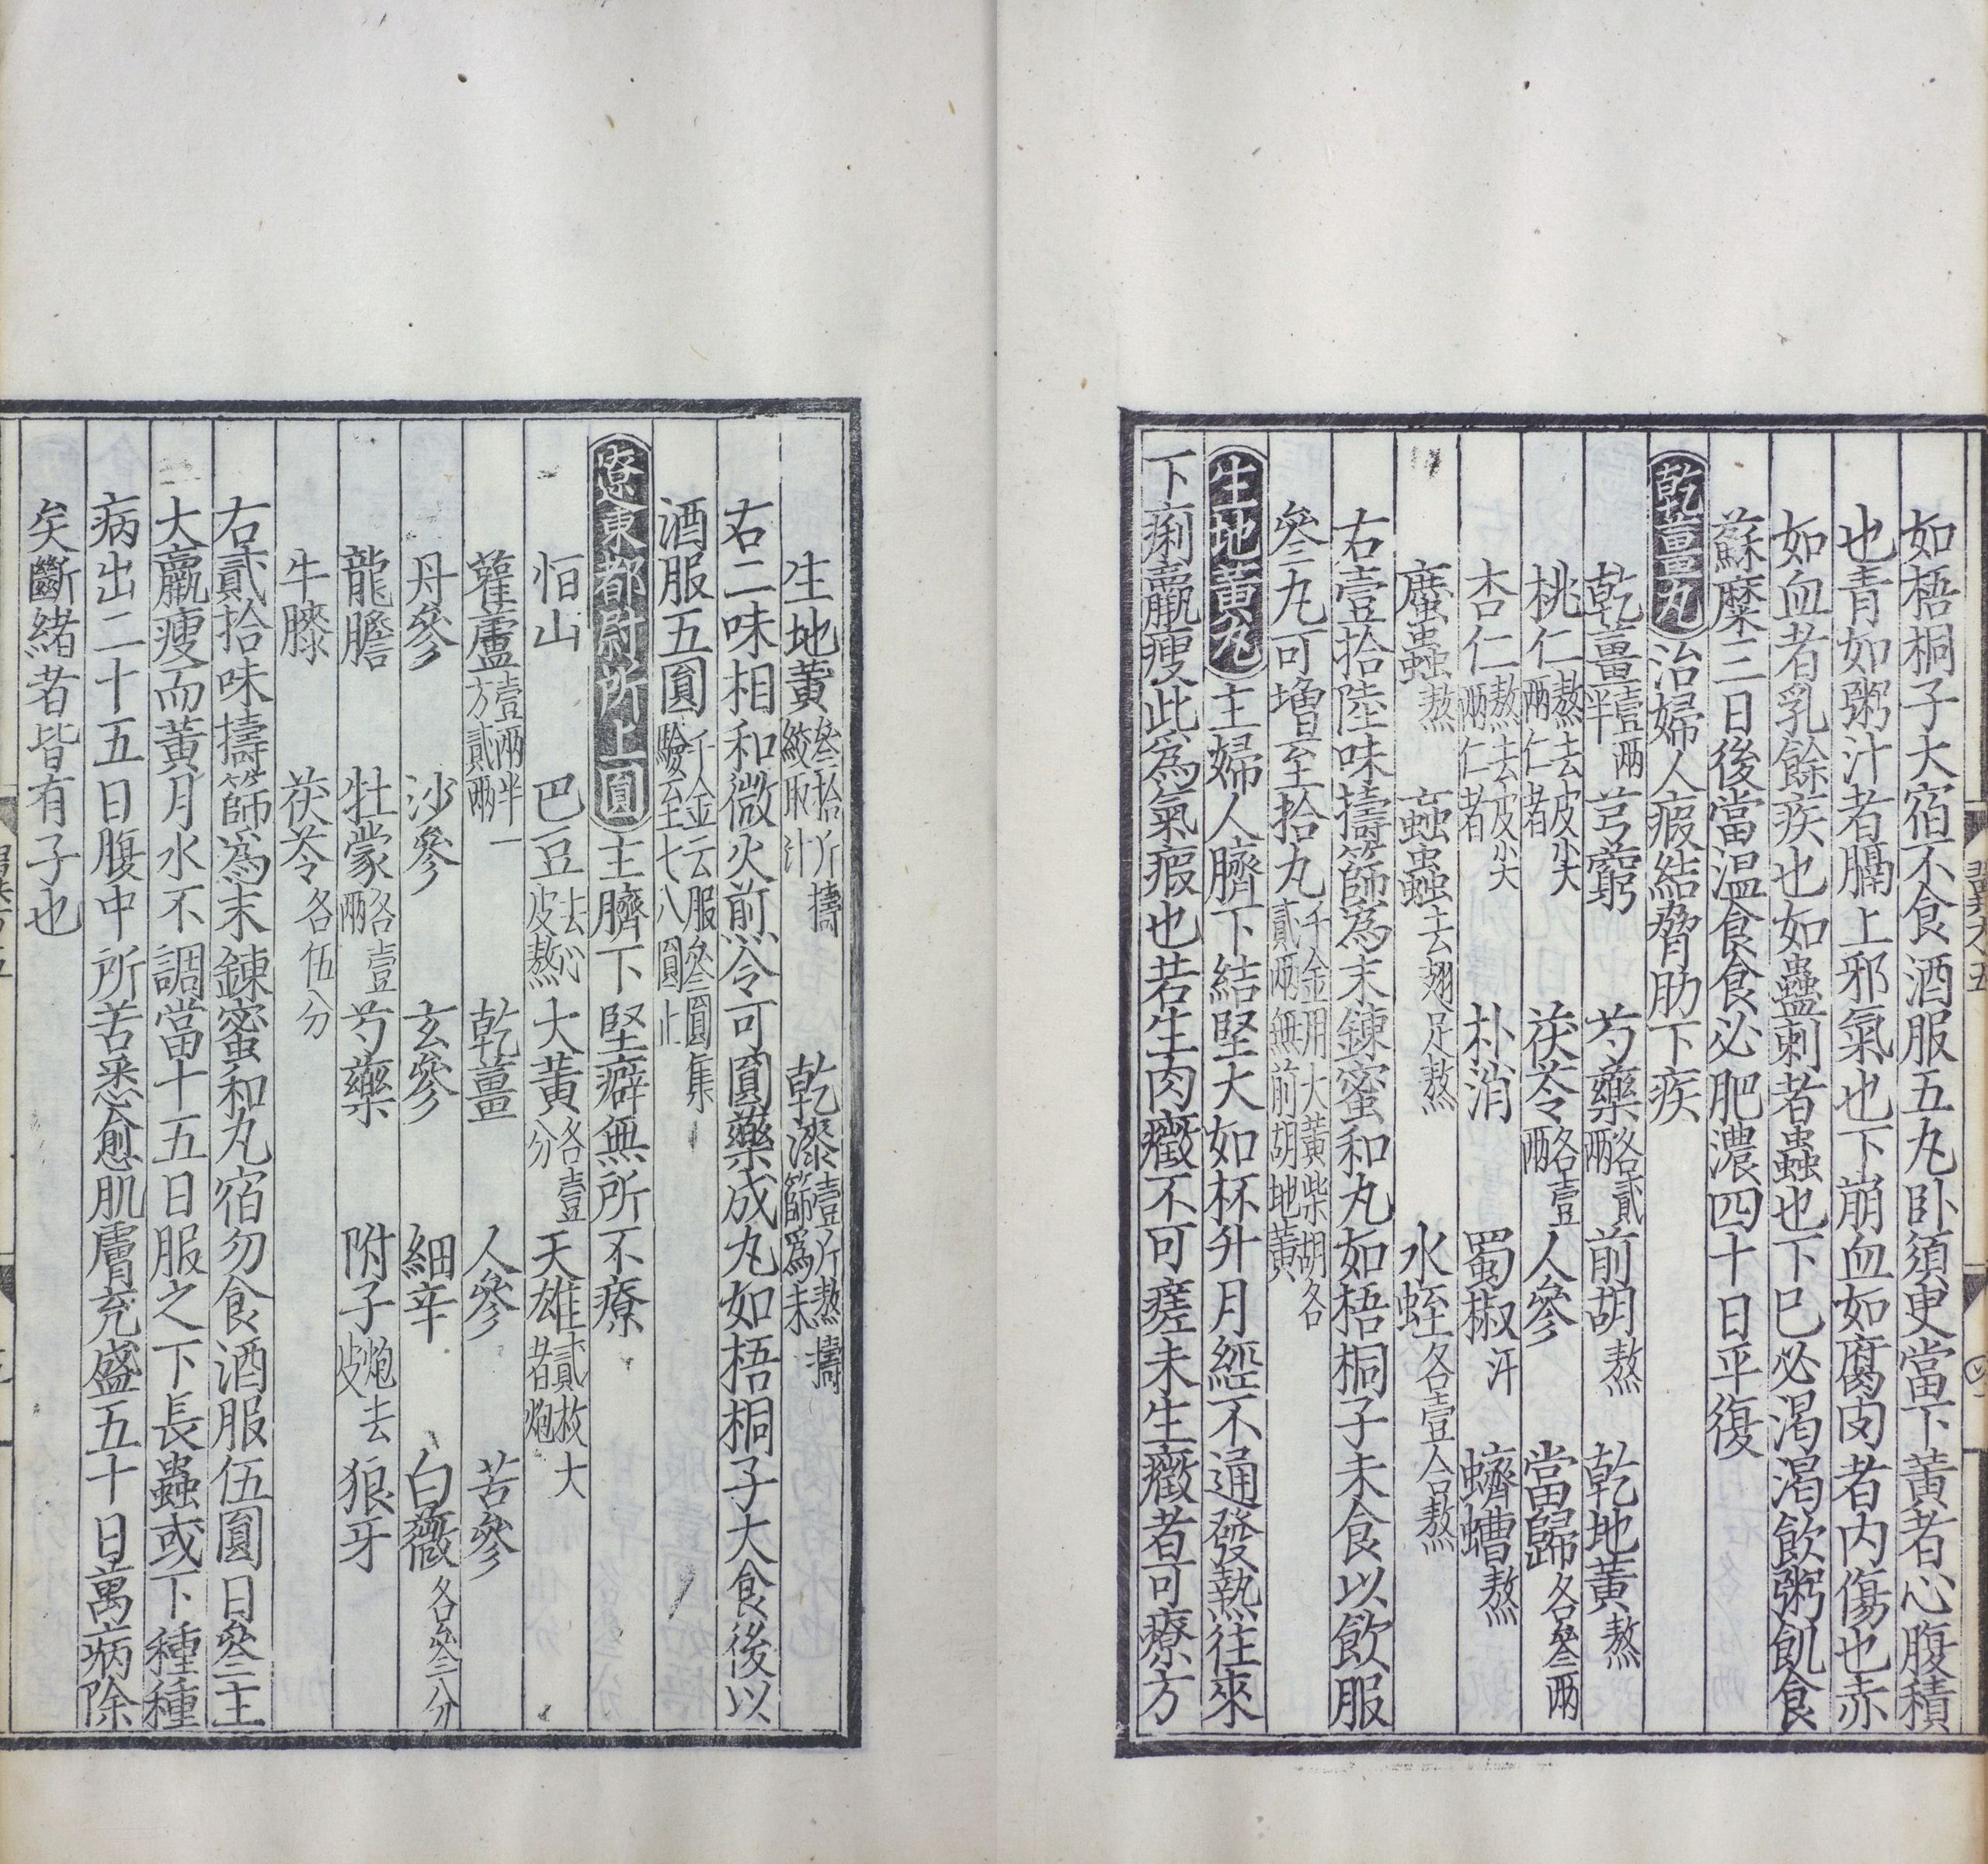 如梧桐子大宿不食酒服五丸卧須臾當下黃者心腹積
也青如粥汁者膈上邪氣也下崩血如腐肉者內傷也赤
如血者乳餘疾也如蠱刺者蟲也下巳必渴渴飲粥飢食
蘇糜三日後當溫食食必肥濃四十日平復
乾薑丸治婦人瘕結脅肋下疾
乾薑壹兩半 芎藭 芍藥各貳兩 前胡熬 乾地黃熬
桃仁熬去皮尖兩仁者 茯苓各壹兩 人參 當歸各叄兩
杏仁熬去皮尖兩仁者 朴消 蜀椒汗 蠐螬熬
䗪蟲熬 蝱蟲去翅足熬 水蛭各壹合熬
右壹拾陸味擣篩為末鍊蜜和丸如梧桐子未食以飲服
叄丸可增至拾丸千金用大黃柴胡各貳兩無前胡地黃
生地黃丸主婦人臍下結堅大如杯升月經不通發熱往來
下痢羸瘦此為氣瘕也若生肉癥不可瘥未生癥者可療方
生地黃叄拾斤擣絞取汁 乾漆壹斤熬擣篩為末
右二味相和微火煎冷可圓藥成丸如梧桐子大食後以
酒服五圓千金云服叄圓集驗云至七八圓止
遼東都尉所上圓主臍下堅癖無所不療
恒山 巴豆去心皮熬 大黃各壹分 天雄貳枚大者炮
雚蘆壹兩半一方貳兩 乾薑 人參 苦參
丹參 沙參 玄參 細辛 白薇各叄分
龍膽 牡蒙各壹兩 芍藥 附子炮去皮 狼牙
牛膝 茯苓各伍分
右貳拾味擣篩為末鍊蜜和丸宿勿食酒服伍圓日叄主
大羸瘦而黃月水不調當十五日服之下長蟲或下種種
病出二十五日腹中所苦悉愈肌膚充盛五十日萬病除
矣斷緒者皆有子也